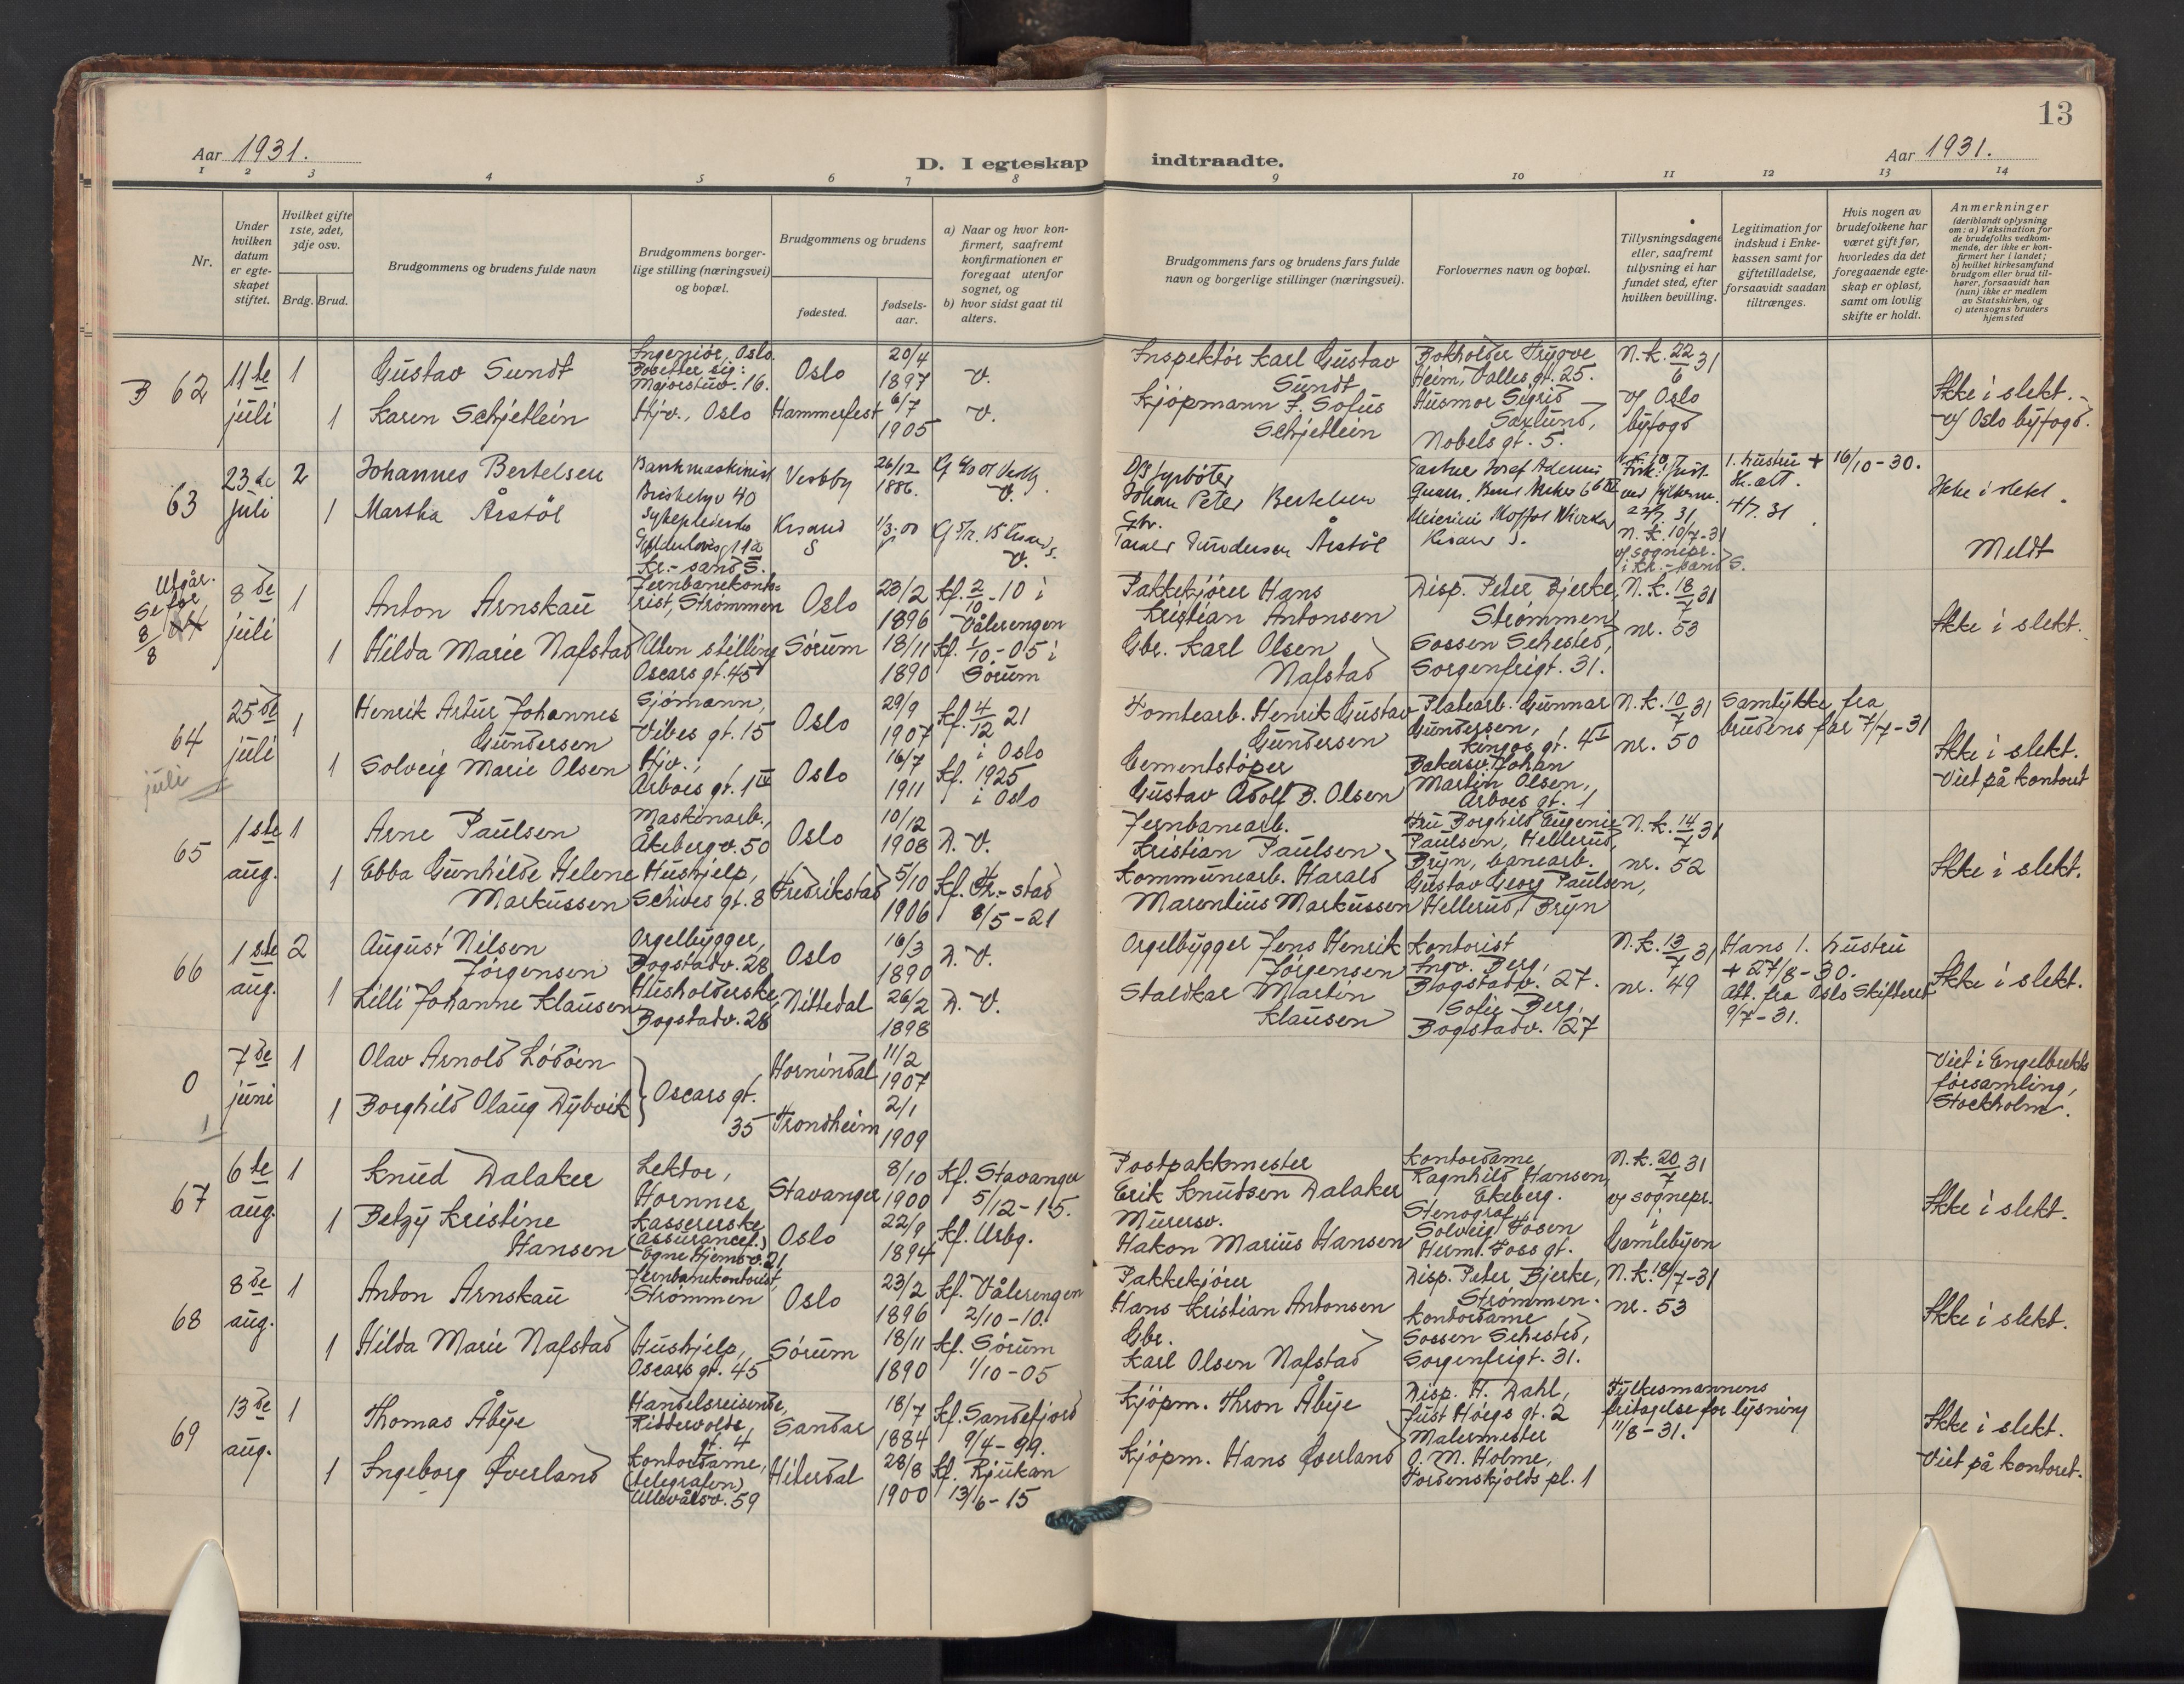 13
Aar 1931.
D. I egteskap indtraadte.
Aar 1931.
1 2 3 4 5 6 7 8 9 10 11 12 13 14
Nr.
Under hvilken datum er egteskapet stiftet.
Hvilket gifte 1ste, 2det, 3dje osv.
Brdg. Brud.
Brudgommens og brudens fulde navn
Brudgommens borgerlige stilling (næringsvei) og bopæl.
Brudgommens og brudens
fødested.
fødselsaar.
a) Naar og hvor konfirmert, saafremt konfirmationen er foregaat utenfor sognet, og
b) hvor sidst gaat til alters.
Brudgommens fars og brudens fars fulde navn og borgerlige stillinger (næringsvei).
Forlovernes navn og bopæl.
Tillysningsdagene eller, saafremt tillysning ei har fundet sted, efter hvilken bevilling.
Legitimation for indskud i Enkekassen samt for giftetilladelse, forsaavidt saadan tiltrænges.
Hvis nogen av brudefolkene har været gift før, hvorledes da det foregaaende egteskap er opløst, samt om lovlig skifte er holdt.
Anmerkninger
(deriblandt oplysning om: a) Vaksination for de brudefolks vedkommende, der ikke er konfirmert her i landet;
b) hvilket kirkesamfund brudgom eller brud tilhører, forsaavidt han (hun) ikke er medlem av Statskirken, og
c) utensogns bruders hjemsted
B 62
11te juli
1
Gustav Sundt
Ingeniør, Oslo. Bosetter sig: Majorstuv. 16.
Oslo
20/4 1897
V.
Inspektør Karl Gustav Sundt
Bokholder Trygve Heim, Valles gt. 25.
N.k. 22/6 31 v/ Oslo byfogd
Ikke i slekt. -
1
Karen Schjetlein
Hjv., Oslo
Hammerfest
6/7 1905
V.
Kjöpmann F. Sofus Schjetlein
Husmor Sigrid Saxlund, Nobels gt. 5.
v/ Oslo byfogd.
63
23de juli
2
Johannes Bertelsen
Bankmaskinist
40
Vestby
26/12 1886.
V.
Johan Peter Bertelsen
1. hustru + 16/10-30.
Sk. att. 4/7. 31
Ikke i slekt.
1
Martha Årstöl
Sykepleierske
Kr.-sand S.
Krsand S
1/3.00
V.
Gbr.
Årstöl
Krsand S.
22/7. 31
N.k. 10/7-31
v/ sognepr. i Kr.-sand S.
Meldt
Utgår. Se for 8/8
8de juli
1
Anton Arnskau
Jernbanekontorist, Strømmen
Oslo
23/2 1896
Kf. 2/10-10 i Vålerengen
Pakkekjører Hans Kristian Antonsen
Disp. Peter Bjerke, Strømmen
N.k. 18/7 31
nr. 53
Ikke i slekt.
1
Hilda Marie Nafstad
Uten stilling Oscars gt. 45
Sörum
18/11 1890
Kf. 1/10-05 i Sörum
Gbr. Karl Olsen Nafstad
Sossen Sehested, Sorgenfrigt. 31.
64
juli
25de juli
1
Henrik Artur Johannes Gundersen
Sjömann, Vibes gt. 15
Oslo
29/9 1907
Kf. 4/12 21 i Oslo
Tomtearb. Henrik Gustav Gundersen
Platearb. Gunnar Gundersen, Kingos gt. 4 I
N.k. 10/7 31
nr. 50
Samtykke fra brudens far 7/7-31
Ikke i slekt.
Viet på kontoret
1
Solveig Marie Olsen
Hjv., Arboes gt. 1 IV
Oslo
16/7 1911
Kf. 1925 i Oslo
Cementstöper Gustav Adolf B. Olsen
Bakersv. Johan Martin Olsen, Arboes gt. 1
65
1ste aug.
1
Arne Paulsen
Maskinarb., Åkebergv. 50
Oslo
10/12 1908
D. V.
Jernbanearb. Kristian Paulsen
Fru Borghild Eugenie Paulsen, Hellerud, Bryn, banearb.
N.k. 14/7 31
nr. 52
Ikke i slekt.
1
Ebba Gunhilde Helene Markussen
Hushjelp, Schives gt. 8
Fredrikstad
5/10 1906
Kf. Fr.-stad 8/5-21
Kommunearb. Harald Marentius Markussen
Gustav Georg Paulsen, Hellerud, Bryn
66
1ste aug.
2
August Nilsen Jörgensen
Orgelbygger, Bogstadv. 28
Oslo
16/3 1890
D. V.
Orgelbygger Jens Henrik Jörgensen
Kontorist Ingv. Berg, Bogstadv. 27.
N.k. 13/7 31
nr. 49
Hans 1. hustru + 27/8-30.
Att. fra Oslo Skifterett 9/7-31.
Ikke i slekt.
1
Lilli Johanne Klausen
Husholderske, Bogstadv. 28
Nittedal
26/2 1898
D. V.
Staldkar Martin Klausen
Sofie Berg, Bogstadv. 27
0
1
7de juni
1
Olav Arnold Lödöen
Oscars gt. 35
Hornindal
11/2 1907
Viet i Engelbrekts församling, Stockholm.
1
Borghild Olaug Dybvik
Trondheim
2/1 1909
67
6te aug.
1
Knud Dalaker
Lektor, Hornnes
Stavanger
8/10 1900
Kf. Stavanger 5/12-15.
Postpakkmester Erik Knudsen Dalaker
Kontordame Ragnhild Hansen, Ekeberg.
N.k. 20/7 31 v/ sognepr. i Gamlebyen
Ikke i slekt.
1
Betzy Kristine Hansen
Kassererske (Assurancef.) Egne Hjemsv. 21
Oslo
22/9 1894
Kf. Urbg.
Murersv. Hakon Marius Hansen
Stenograf Solveig Fosen Herm. Foss gt.
68
8de aug.
1
Anton Arnskau
Jernbanekontorist, Strømmen
Oslo
23/2 1896
Kf. Vålerengen 2/10-10.
Pakkekjörer Hans Kristian Antonsen
Disp. Peter Bjerke, Strømmen.
N.k. 18/7-31
nr. 53
Ikke i slekt.
1
Hilda Marie Nafstad
Hushjelp, Oscars gt. 45
Sörum
18/11 1890
Kf. Sörum 1/10-05
Gbr. Karl Olsen Nafstad
Kontordame Sossen Sehested, Sorgenfrigt. 31.
69
13de aug.
1
Thomas Åbye
Handelsreisende, Riddervolds gt. 4
Sandar
18/7 1884
Kf. Sandefjord 9/4-99.
Kjöpm. Thron Åbye
Disp. H. Dahl, Just Höegs gt. 2
Fylkesmannens fritagelse for lysning 11/8-31.
Ikke i slekt.
Viet på kontoret.
1
Ingeborg Øverland
Kontordame, (telegrafen) Ullevålsv. 59
Hiterdal
28/8 1900
Kf. Rjukan 13/6-15
Kjöpm. Hans Øverland
Malermester O. M. Holme, Tordenskjolds pl. 1